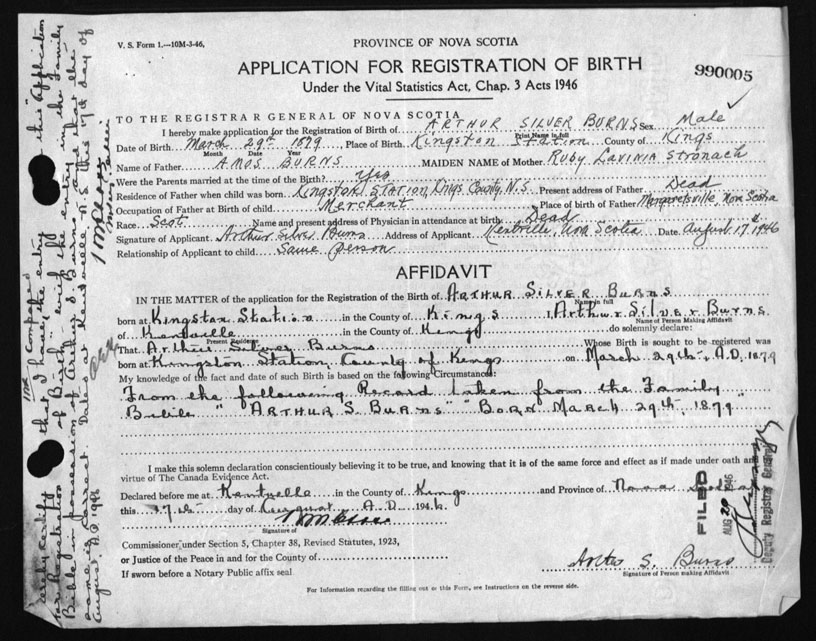 V. S. Form 1.—10M-3-46,
PROVINCE OF NOVA SCOTIA
APPLICATION FOR REGISTRATION OF BIRTH
990005
Under the Vital Statistics Act, Chap. 3 Acts 1946
TO THE REGISTRAR GENERAL OF NOVA SCOTIA
I hereby make application for the Registration of Birth of ARTHUR SILVER BURNS Sex Male
Print Name in full
Date of Birth March 29th 1879 Place of Birth Kingston Station County of Kings
Month Date Year
Name of Father AMOS BURNS MAIDEN NAME of Mother Ruby Lavinia Stronach
Were the Parents married at the time of the Birth? Yes
Residence of Father when child was born KINGSTON STATION, Kings County, N.S. Present address of Father Dead
Occupation of Father at Birth of child Merchant Place of birth of Father Margaretsville, Nova Scotia
Race Scot Name and present address of Physician in attendance at birth Dead
Signature of Applicant Arthur Silver Burns Address of Applicant Kentville, Nova Scotia Date August 17th 1946
Relationship of Applicant to child Same person
AFFIDAVIT
IN THE MATTER of the application for the Registration of the Birth of ARTHUR SILVER BURNS
Name in full
born at Kingston Station in the County of Kings I, Arthur Silver Burns
Name of Person Making Affidavit
of Kentville in the County of Kings do solemnly declare:
Present Residence
That Arthur Silver Burns Whose Birth is sought to be registered was
born at Kingston Station, County of Kings on March 29th, A.D. 1879
My knowledge of the fact and date of such Birth is based on the following Circumstances:
From the following Record taken from the Family
Bible "ARTHUR S. BURNS" "BORN MARCH 29th, 1879"
I make this solemn declaration conscientiously believing it to be true, and knowing that it is of the same force and effect as if made under oath and
virtue of The Canada Evidence Act.
Declared before me at Kentville in the County of Kings and Province of Nova Scotia
this 17th day of August A.D. 1946
Signature of
Commissioner under Section 5, Chapter 38, Revised Statutes, 1923,
or Justice of the Peace in and for the County of
If sworn before a Notary Public affix seal
Arthur S. Burns
Signature of Person making Affidavit
For Information regarding the filling out of this Form, see Instructions on the reverse side.
FILED
AUG 20 1946
Deputy Registrar General
certify that I have compared this Application
for Registration of Birth with the entry in the Family
Bible in possession of Arthur S. Burns and that the
same is correct. Dated at Kentville N S this 17th day of
August A D 1946